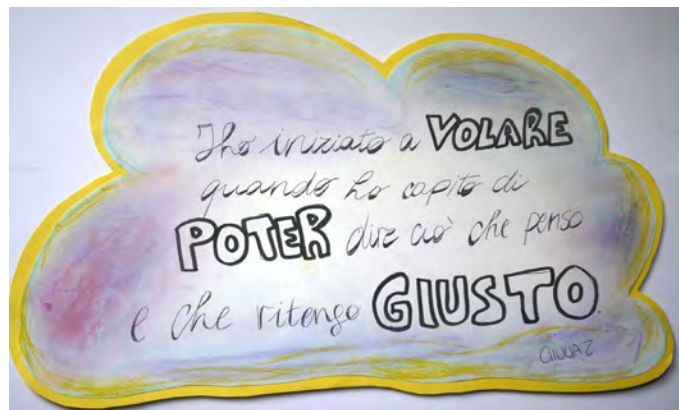 Ho iniziato a VOLARE
quando ho capito di
POTER dire ciò che penso
e che ritengo GIUSTO.
GIULIA Z